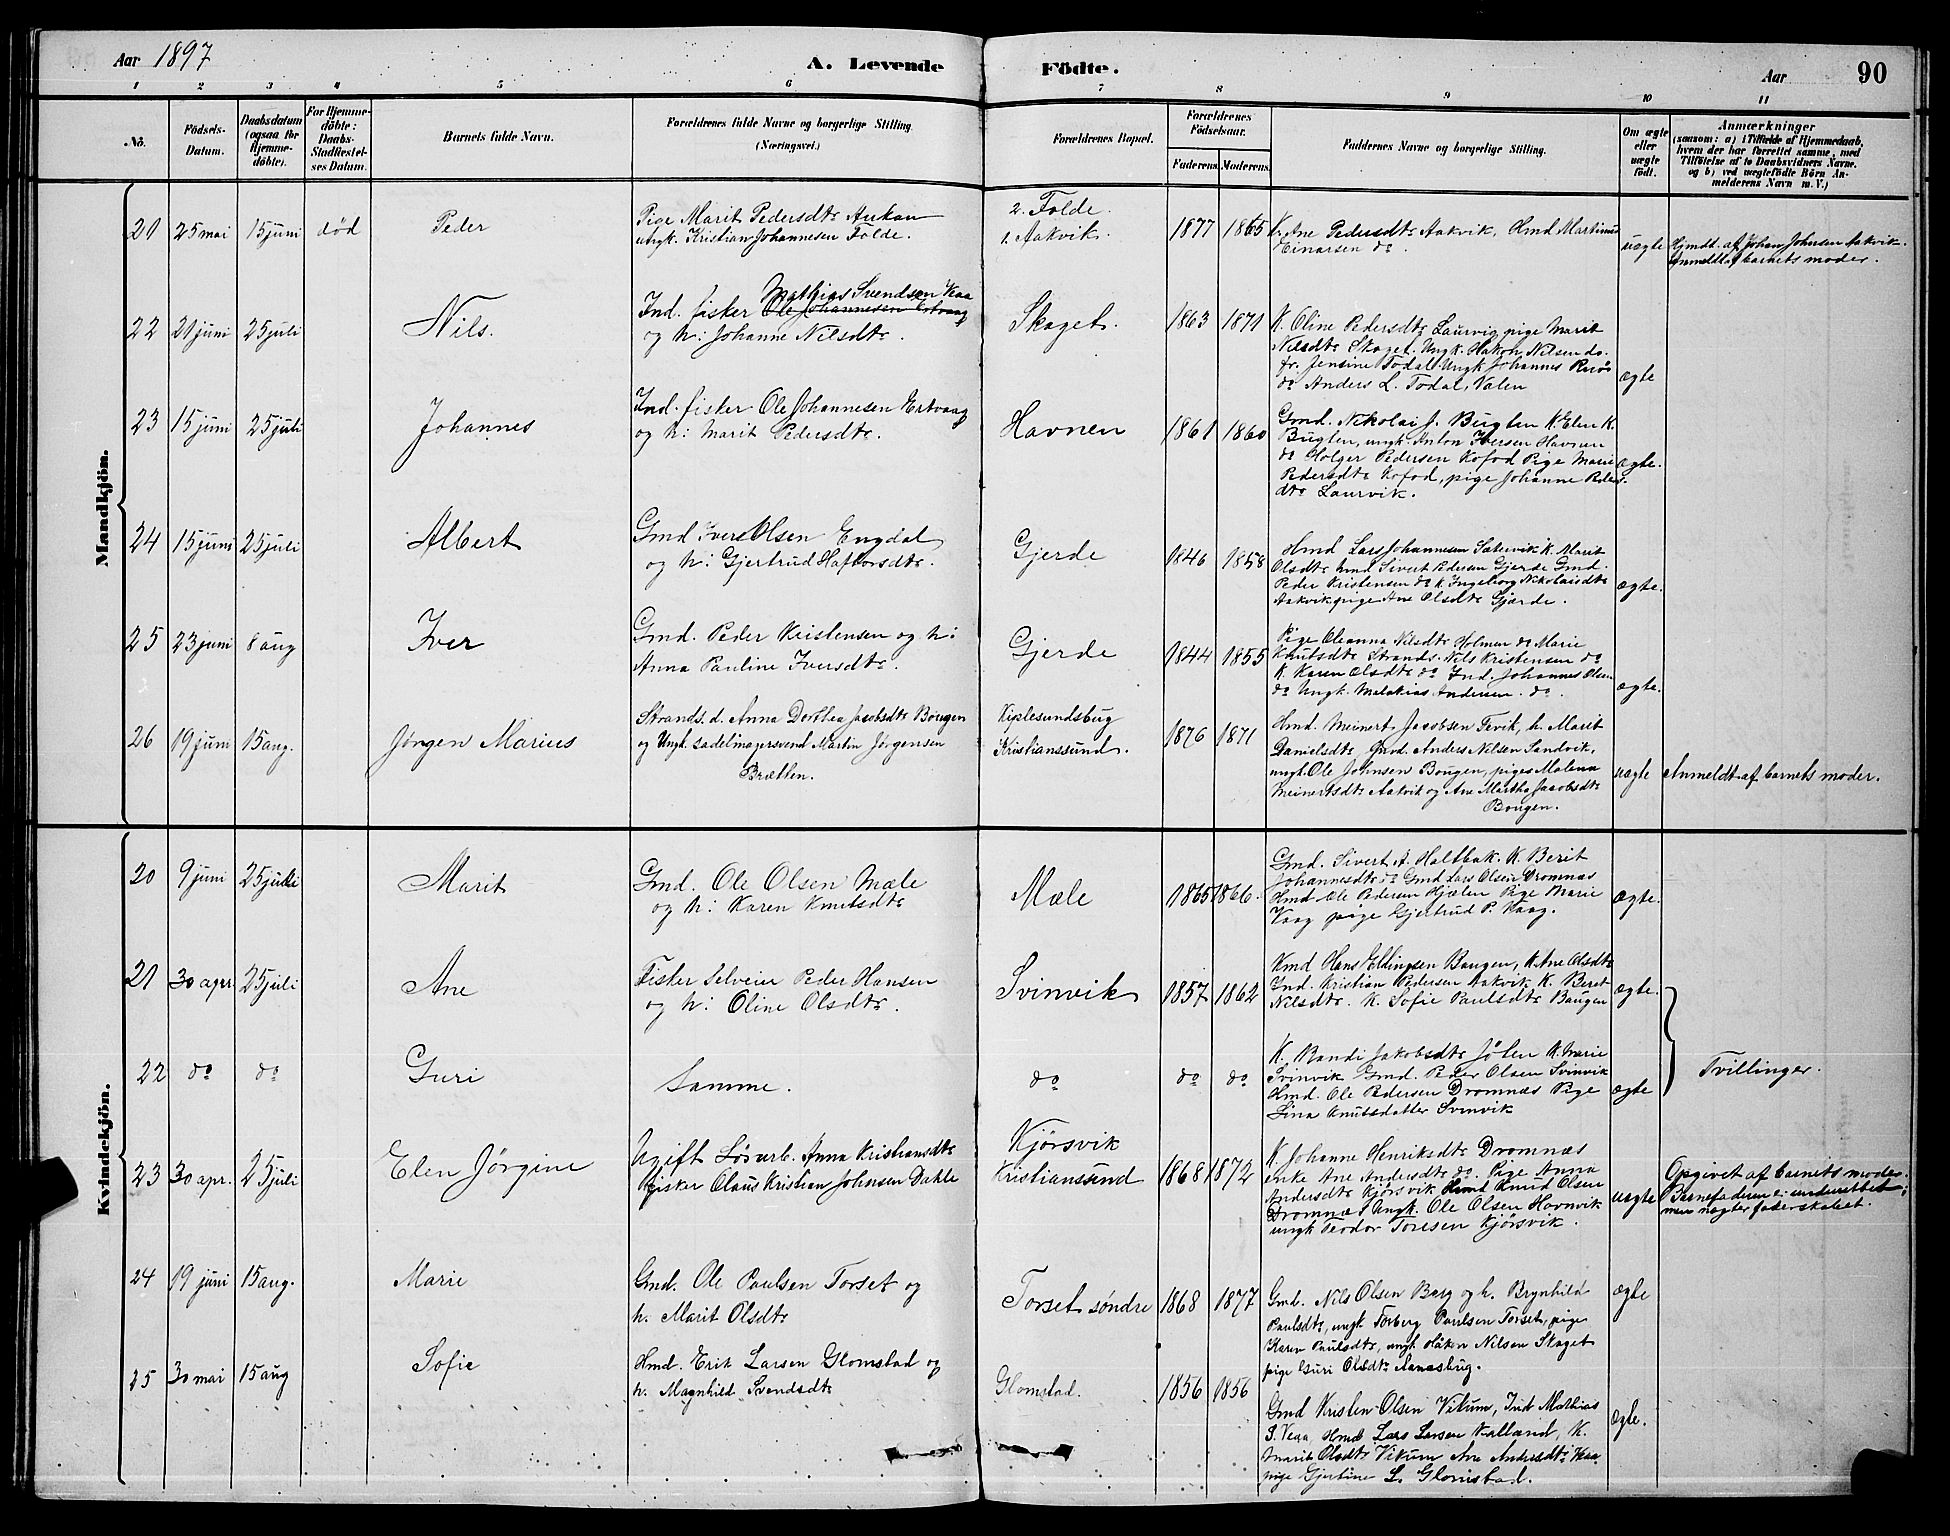 Aar 1897
A. Levende Födte.
Aar
90
1 2 3 4 5 6 7 8 9 10 11
No.
Födsels-Datum.
Daabsdatum (ogsaa for Hjemme-döbte).
For Hjemme-döbte: Daabs-Stadfæstel-ses Datum.
Barnets fulde Navn.
Forældrenes fulde Navne og borgerlige Stilling. (Næringsvei.)
Forældrenes Bopæl.
Forældrenes Födselsaar.
Faderens. Moderens.
Faddernes Navne og borgerlige Stilling.
Om ægte eller uægte født.
Anmærkninger
(saasom: a) i Tilfælde af Hjemmedaab,
hvem der har forrettet samme, med
Tilföielse af to Daabsvidners Navne.
og b) ved uægtefödte Börn An-
melderens Navn m. V.)
Mandkjön.
21 25 mai 15 juni död Peder
Pige Marit Pedersdtr Aukan
ungk. Kristian Johannesen Folde.
2. Folde.
1. Aakvik.
1877 1865
K. Ane Pedersdtr Aakvik, Hmd Martinus
Einarsen do
uægte
Hjmdt. af Johan Johnsen Aakvik.
Anmeldt af barnets moder.
22 21 juni 25 juli Nils.
Mathias Svendsen Vaa
Ind. fisker Ole Johannesen Ertvaag
og h: Johanne Nilsdtr.
Skaget.
1863 1871
K. Oline Pedersdtr Laurvig, pige Marit
Nilsdtr Skaget. Ungk. Hakon Nilsen do.
fr. Jensine Todal. Ungk Johannes
do Anders L. Todal, Valen
ægte
23 15 juni 25 juli Johannes
Ind. fisker Ole Johannesen Ertvaag
og h: Marit Pedersdtr.
Havnen
1861 1860
Gmd. Nikolai J. Bugten K. Elen K.
Bugten, ungk. Anton Iversen Havnen
do Holger Pedersen Kofod Pige Marie
Pedersdtr Kofod, pige Johanne Peders
dtr Laurvik.
ægte.
24 15 juni 25 juli Albert
Gmd Iver Olsen Engdal
og h: Gjertrud Haftorsdtr.
Gjerde
1846 1858
Hmd Lars Johannesen Sætervik K. Marit
Olsdtr hmd Sivert Pedersen Gjerde Gmd.
Peder Kristensen do K. Ingeborg Nikolaisdtr
Aakvik pige Ane Olsdtr Gjærde.
ægte.
25 23 juni 8 aug Iver
Gmd. Peder Kristensen og h:
Anna Pauline Iversdtr.
Gjerde
1844 1855
Pige Oleanna Nilsdtr Holmen do Marie
Knutsdtr Strands. Nils Kristensen do
K. Karen Olsdtr do Ind. Johannes Olsen
do Ungk. Melakias Andersen. do.
ægte.
26 19 juni 15 aug. Jørgen Marius
Strands. d. Anna Dorthea Jacobsdtr Bøugen
og Ungk. sadelmagersvend Martin Jørgensen
Brætten.
Kiplesundsbug
Kristianssund.
1876 1871
Hmd. Meinert Jacobsen Tevik, h. Marit
Danielsdtr, Gmd. Anders Nilsen Sandvik,
ungk. Ole Johnsen Bougen, piges Malena
Meinertsdtr Aakvik og Ane Martha Jacobsdtr
Bougen.
uægte
Anmeldt af barnets moder.
Kvindekjön.
20 9 juni 25 juli Marit
Gmd. Ole Olsen Mæle
og h: Karen Knutsdtr
Mæle
1865 1866.
Gmd. Sivert A. Haltbak. K. Berit
Johannesdtr do Gmd Lars Olsen Dromnæs
Hmd Ole Pedersen Hjælen Pige Marie
Vaag pige Gjertrud P. Vaag.
ægte.
21 30 apr. 25 juli Ane
Fisker Selveier Peder Hansen
og h: Oline Olsdtr.
Svinvik
1857 1862
Kmd Hans Eldingsen Baugen, K. Ane Olsdtr
Ind. Kristian Pedersen Aakvik K. Beret
Nilsdtr. K. Sofie Paulsdtr Baugen
ægte.
22 do do Guri
Samme.
do
do do
K. Randi Jakobsdtr Jølen K. Marie
Svinvik Gmd. Peder Olsen Svinvik
Hmd. Ole Pedersen Dromnæs Pige
Lina Knutsdatter Svinvik
ægte
Tvillinger.
23 30 apr. 25 juli Elen Jörgine
Ugift Løsarb. Anna Kristiansdtr
Fisker Claus Kristian Johnsen Dahle
Kjörsvik
Kristianssund
1868 1872
K Johanne Henriksdtr Dromnæs
enke Ane Andersdtr do. Pige Anna
Andersdtr Kjörsvik Hmd Knud Olsen
Dromnæs Ungk. Ole Olsen Hovnvik
ungk Teodor Toresen Kjörsvik.
uægte
Opgivet af barnets moder.
Barnefaderen ei underrettet;
men nægter faderskabet.
24 19 juni 15 aug. Marie
Gmd. Ole Paulsen Torset og
h. Marit Olsdtr
Torset søndre
1868 1877
Gmd. Nils Olsen Berg og h. Brynhild
Paulsdtr, ungk. Torberg Paulsen Torset, pige
Karen Paulsdtr, ungk Håken Nilsen Skaget
pige Guri Olsdtr Aanesbug.
ægte
25 30 mai 15 aug Sofie
Hmd. Erik Larsen Glomstad og
h. Magnhild Svendsdtr
Glomstad.
1856 1856
Gmd Kristen Olsen Vikum, Ind Mathias
S. Vaa, Hmd Lars Larsen Valland, K.
Marit Olsdtr Vikum Ane Andersdtr Vaa
pige Gjertine L. Glomstad.
ægte.